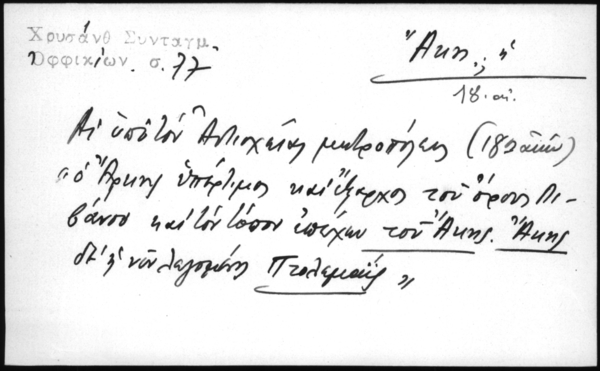 Χρυσάνθ Συνταγμ.
Ὀφφικίων. σ. 77
Ἄκη, ἡ
18. αἰ.
Αἱ ὑπὸ τὸν Ἀντιοχείας μητροπόλεις (18ος αἰών)
"ὁ Ἄρκης ὑπέρτιμος καὶ ἔξαρχος τοῦ ὄρους Λι-
βάνου καὶ τὸν τόπον ἐπέχων τοῦ Ἄκης. Ἄκης
δὲ ἡ νῦν λεγομένη Πτολεμαΐς"